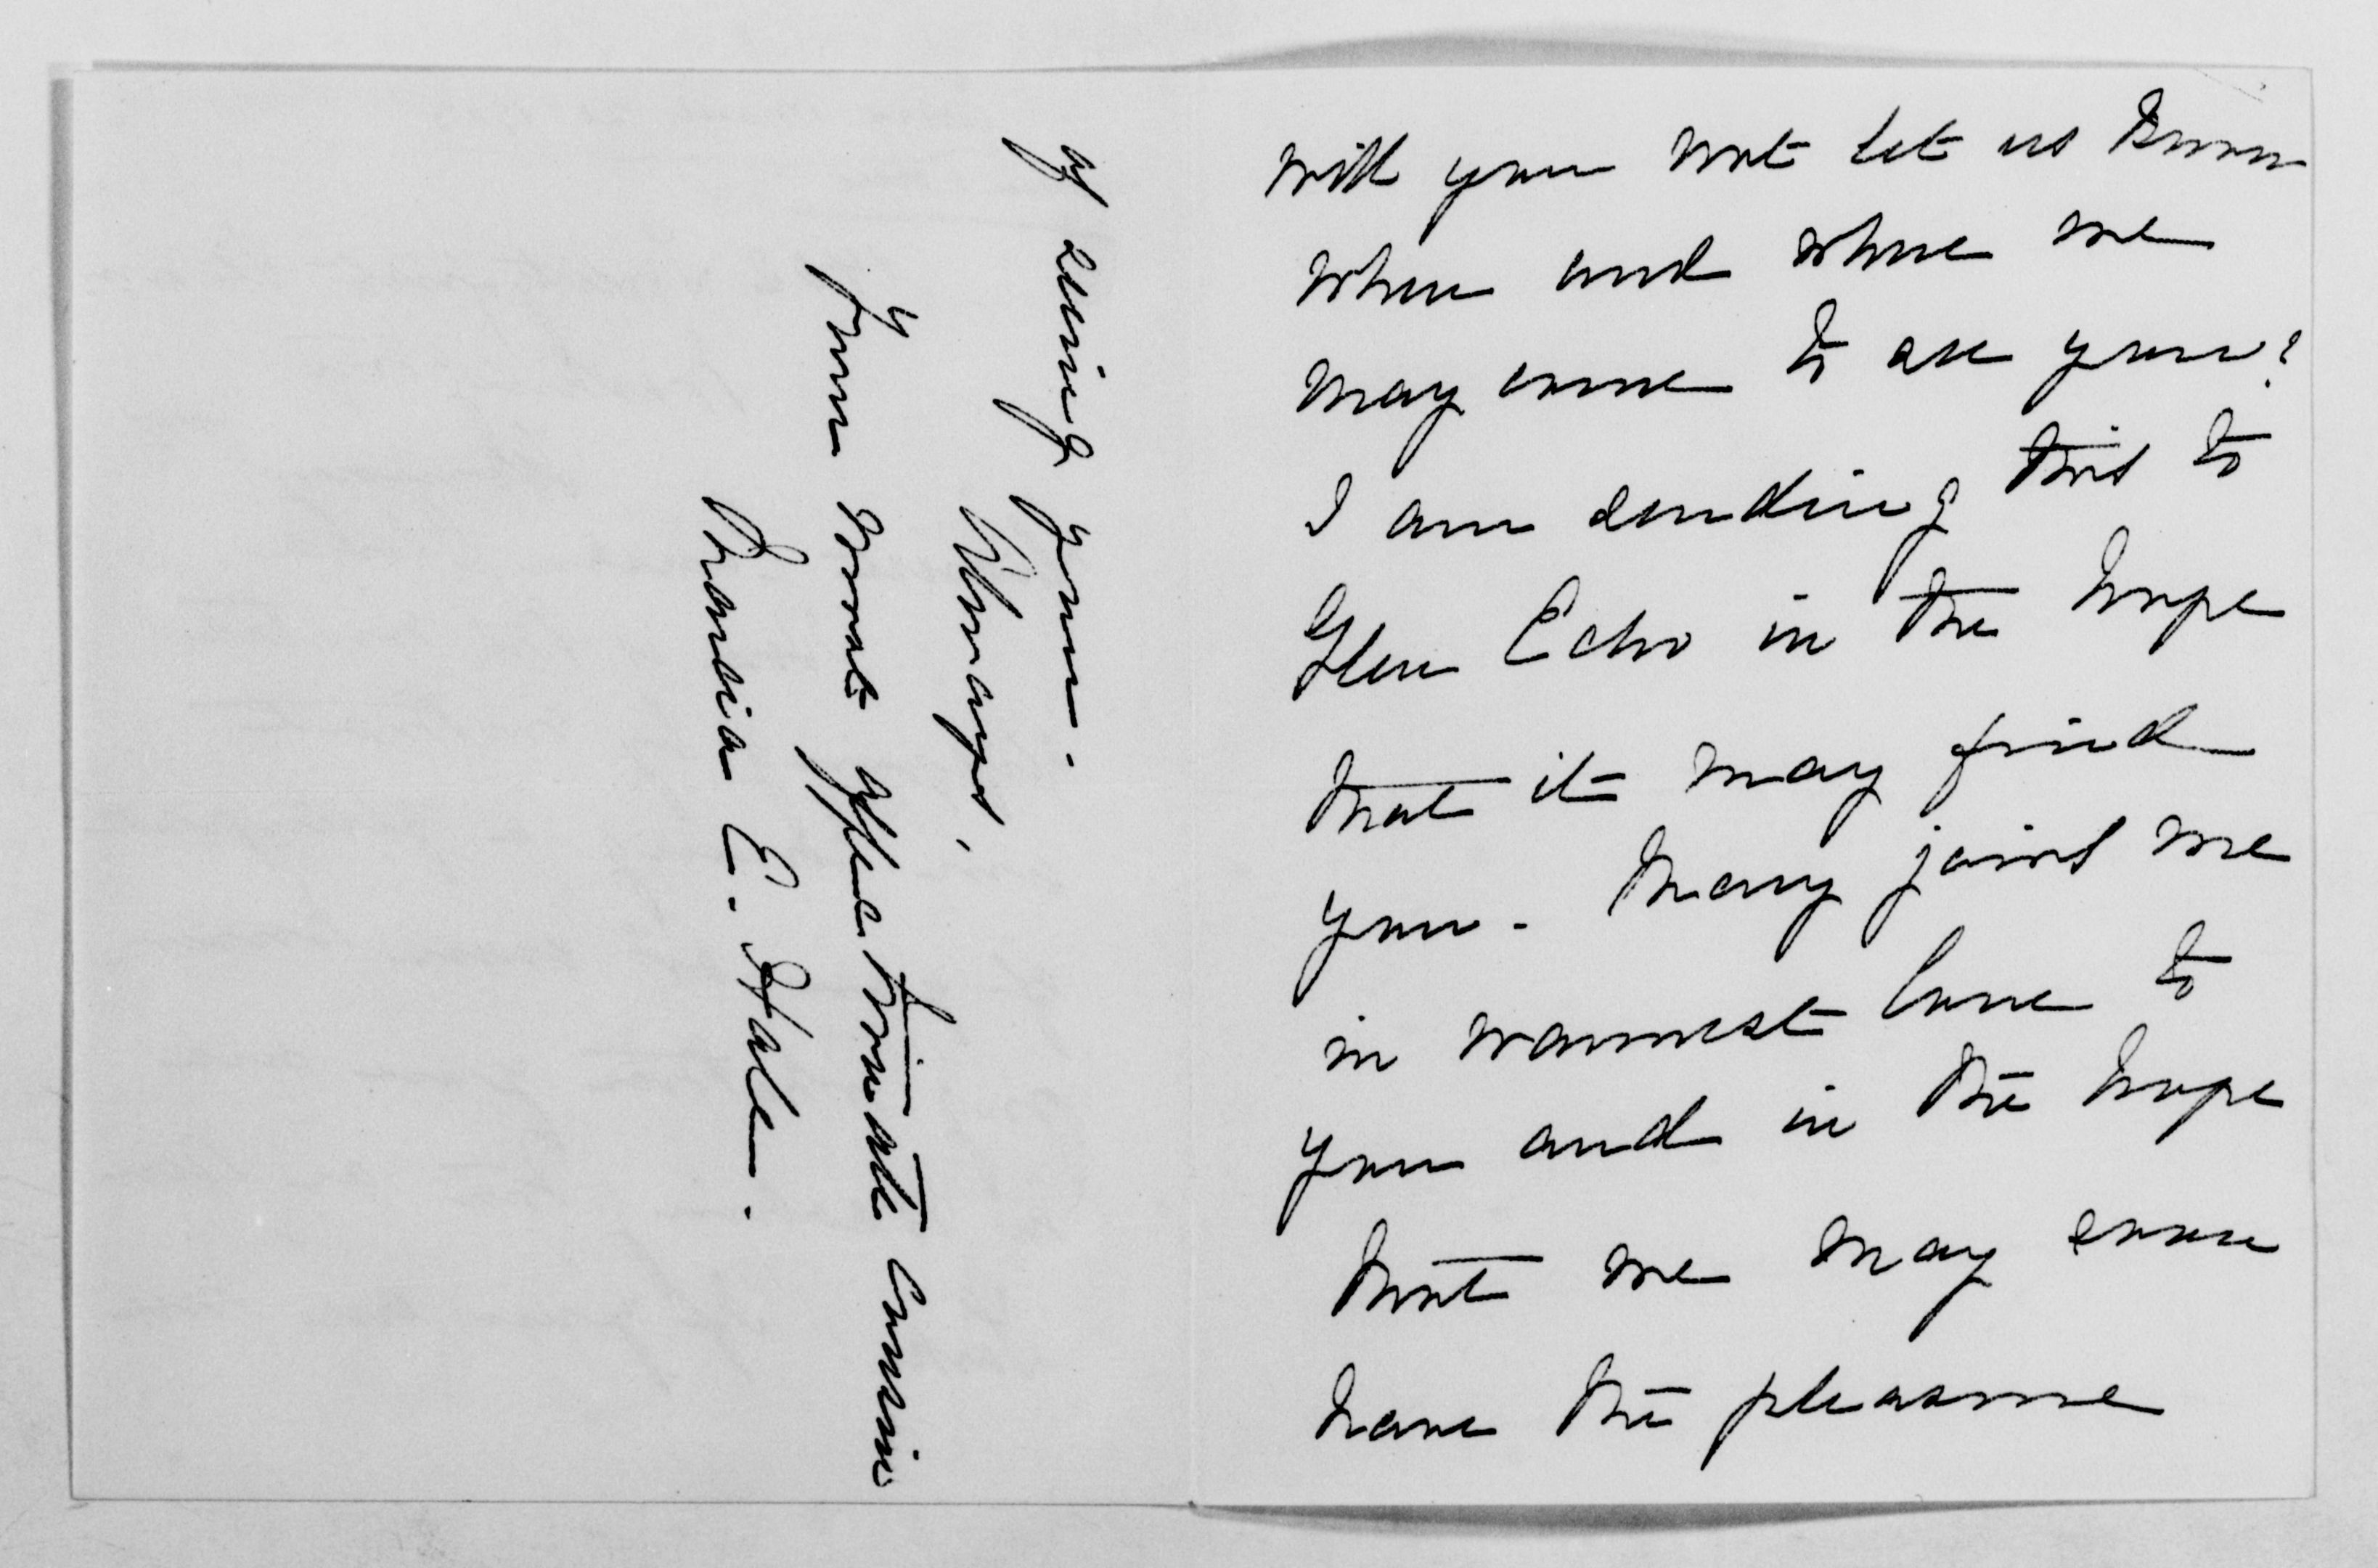 Will you not let us know
when and where we
may come to see you?
I am sending this to
Glen Echo in the hope
that it may find
you. Mary joins me
in warmest love to
you and in the hope
that we may soon
have the pleasure
of seeing you.
Always,
your most affectionate cousin
E. Hale.